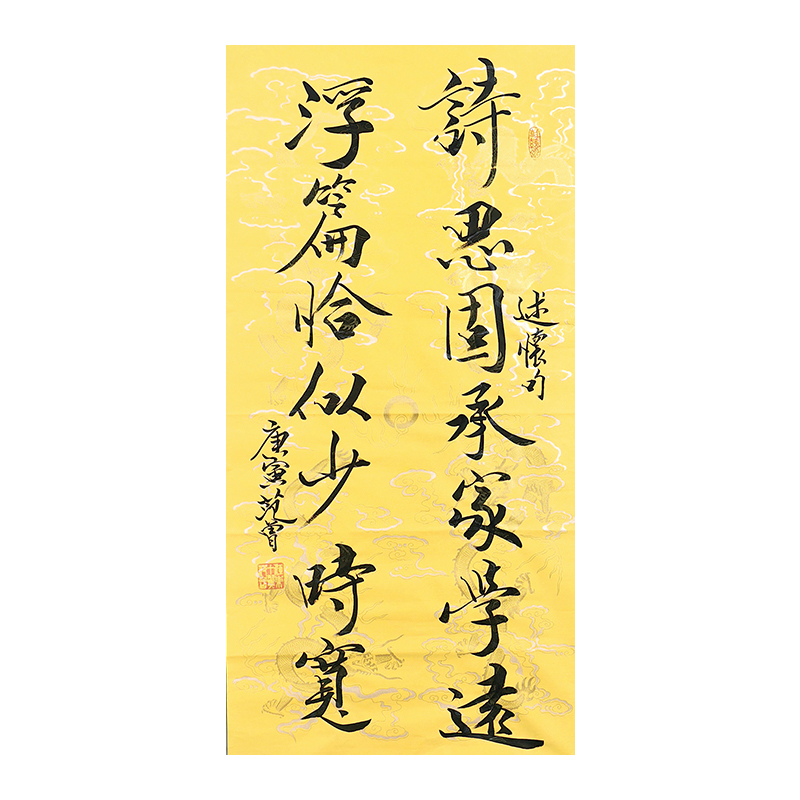 詩思固承家學遠
浮篇恰似少時寬
述懷句
庚寅范曾